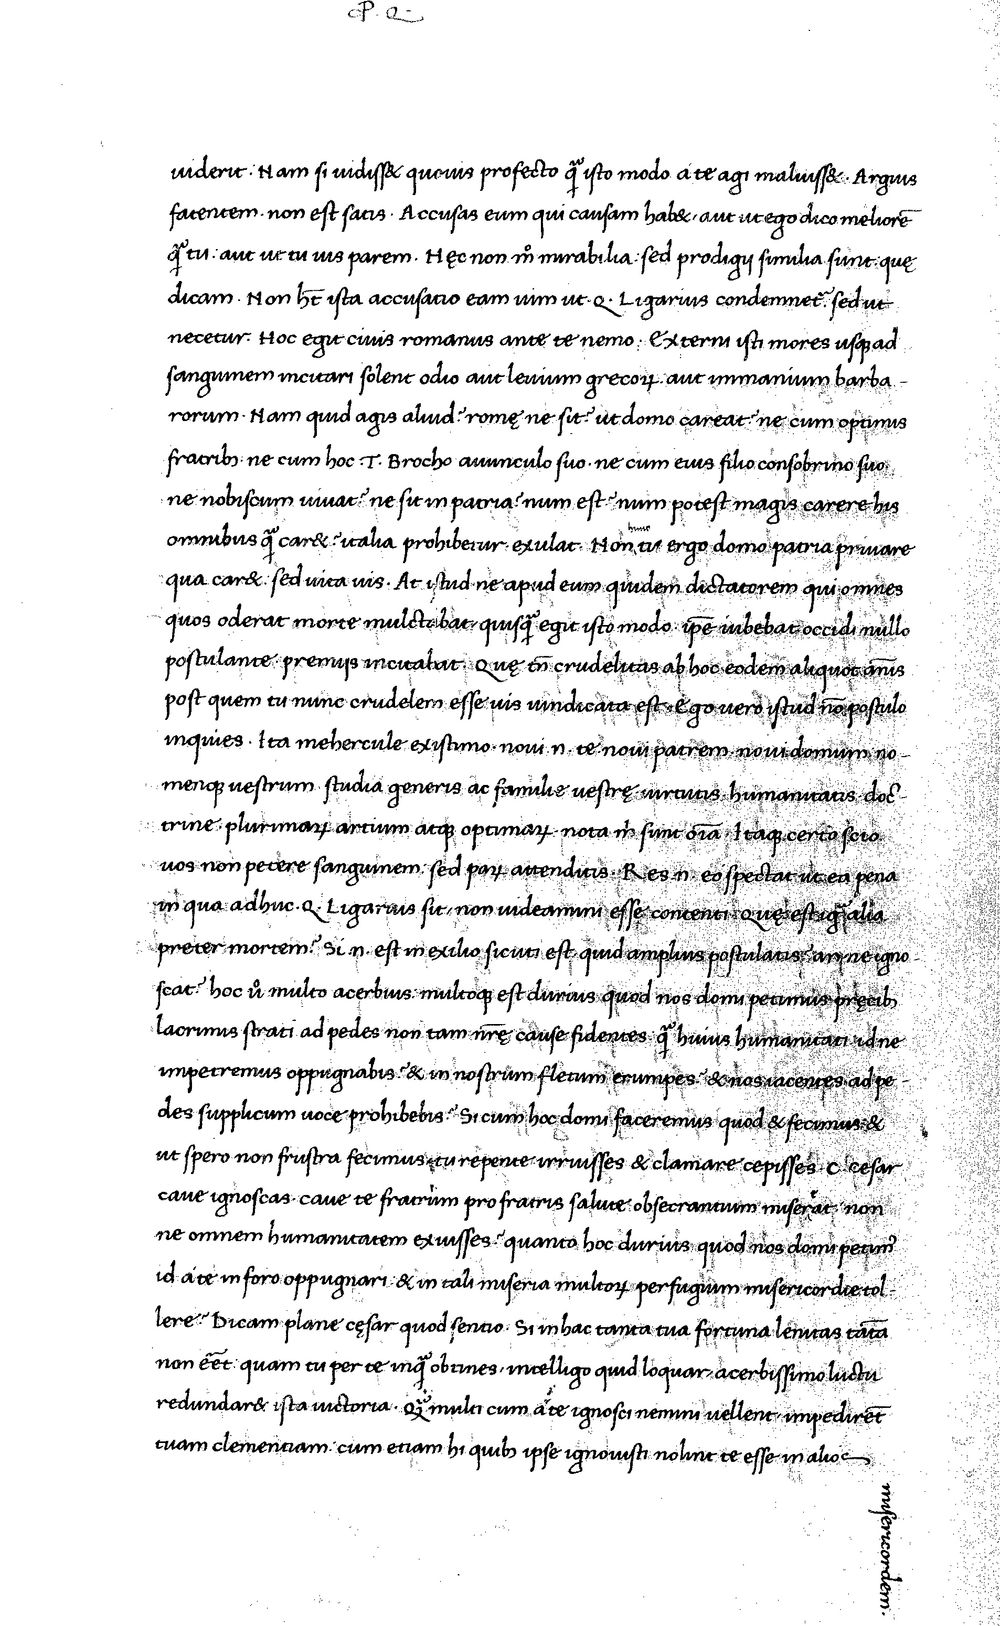 P. Q.
uiderit. Nam si uidiss& quouis profecto q̃ isto modo a te agi maluiss&. Arguis
fatentem. non est satis. Accusas eum qui causam hab&, aut ut ego dico meliorē
q̃ tu: aut ut tu uis parem. Hęc non m̊ mirabilia: sed prodigij similia sunt: quę
dicam. Non ht̄ ista accusatio eam uim ut .Q. Ligarius condemnet᷑: sed ut
necetur. Hoc egit ciuis romanus ante te nemo. Externi isti mores usqꝫ ad
sanguinem incitari solent odio aut leuium grecoꝝ aut immanium barba-
rorum. Nam quid agis aliud? romę ne sit? ut domo careat? ne cum optimis
fratribꝫ ne cum hoc .T. Brocho auunculo suo. ne cum eius filio consobrino suo.
ne nobiscum uiuat? ne sit in patria? num est? num potest magis carere his
omnibus q̃ car&? italia prohibetur. exulat. Non tu hunc ergo domo patria priuare
qua car&: sed uita uis. At istud ne apud eum quidem dictatorem qui omnes
quos oderat morte mulctabat, quisq̃ egit isto modo. ipe̅ iubebat occidi nullo
postulante. premijs incitabat. Quę tn̄ crudelitas ab hoc eodem aliquot ānis
post quem tu nunc crudelem esse uis uindicata est. Ego uero istud nō postulo
inquies. Ita mehercule existimo. noui .n. te noui patrem. noui domum no-
menqꝫ uestrum. studia generis ac familie uestrę uirtutis. humanitatis. doc-
trine. plurimaꝝ artium atqꝫ optimaꝝ nota m̊ sunt oi̅a. Itaqꝫ certo scio
uos non petere sanguinem. sed paꝝ attenditis. Res .n. eo spectat ut ea pena
in qua adhuc .Q. Ligarius sit, non uideamini esse contenti. Quę est ig̃ alia
preter mortem? Si .n. est in exilio sicuti est. quid amplius postulatis? an ne igno-
scat? hoc ů multo acerbius. multoqꝫ est durius quod nos domi petimus pręcibꝫ
lacrimis strati ad pedes non tam nr̄ę cause fidentes q̃ huius humanitati. id ne
impetremus oppugnabis? & in nostrum fletum erumpes? & nos iacentes ad pe-
des supplicum uoce prohibebis? Si cum hoc domi faceremus quod & fecimus &
ut spero non frustra fecimus, tu repente irruisses & clamare cepisses .C. cesar
caue ignoscas. caue te fratrum pro fratris salute obsecrantium miserat᷑. non
ne omnem humanitatem exuisses? quanto hoc durius quod nos domi petim᷒
id a te in foro oppugnari. & in tali miseria multoꝝ perfugium misericordie tol-
lere? Dicam plane cęsar quod sentio. Si in hac tanta tua fortuna lenitas tāta
non ēet. quam tu per te inq̃ obtines. intelligo quid loquar. acerbissimo luctu
redundar& ista uictoria. Q̃ multi cum a te ignosci nemini uellent, impedirēt
tuam clementiam. cum etiam hi quibꝫ ipse ignouisti nolint te esse in alios
misericordem.